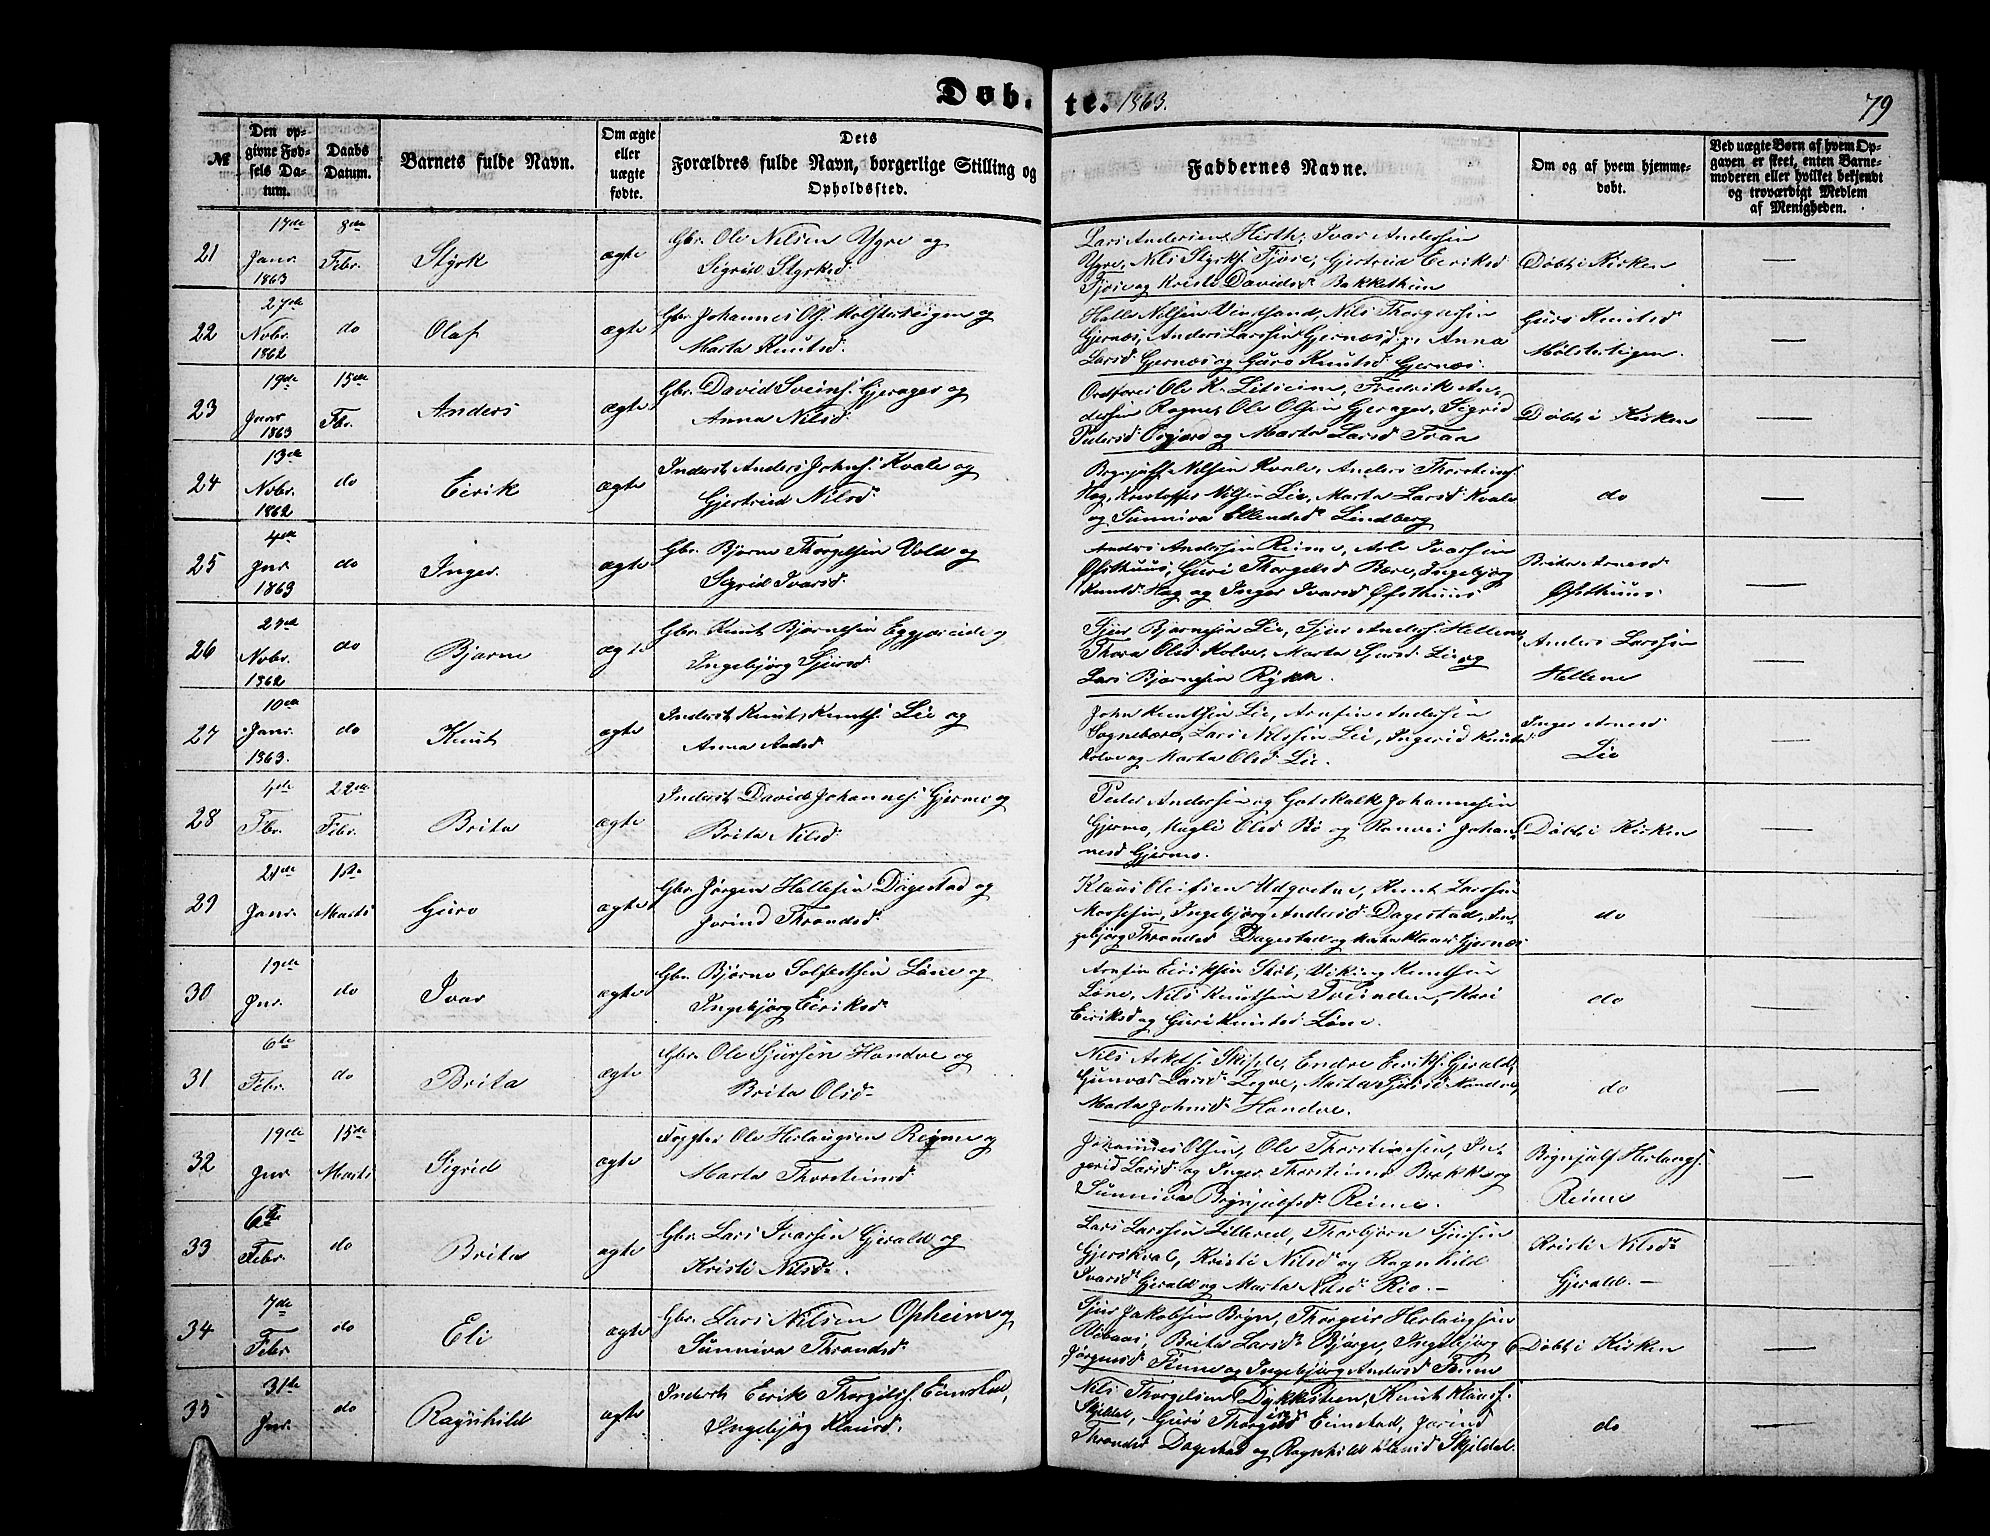 Døb.
te. 1863.
79
№
Den opgivne Fødsels Datum.
Daabs Datum.
Barnets fulde Navn.
Om ægte eller uægte fødte.
Dets Forældres fulde Navn, borgerlige Stilling og Opholdssted.
Faddernes Navne.
Om og af hvem hjemmedøbt.
Ved uægte Børn af hvem Opgaven er skeet, enten Barnemoderen eller hvilket bekjendt og troværdigt Medlem af Menigheden.
21
17de Janr. 1863
8de Febr.
Styrk
ægte
Gbr. Ole Nilsen Ygre og
Sigrid Styrksd.
Lars Andersen Hirth, Ivar Andersen
Ygre, Nils Styrks. Fjøse, Gjertrud Eeriksd
Fjøse og Kristi Davidsd. Bakkethun
Døbt i Kirken
22
27de Nobr. 1862
do
Olaf
ægte
Gbr. Johannes Ols. Mølsterteigen og
Marta Knutsd.
Halle Nilsen Vindsand, Nils Thorgersen
Gjernæs, Anders Larssen Gjernæs, Anna
Larsd Gjernæs og Guro Knutsd. Gjernæs.
Guro Knutsd
Mølsterteigen.
23
19de Janr 1863
15de Fbr.
Anders
ægte
Gbr. David Sveins. Gjerager og
Anna Nilsd.
Ordfører Ole K. Litseim, Fredrik An-
dersen Rogne, Ole Olsen Gjerager, Sigrid
Pedersd og Marta Larsd Traa
Døbt i Kirken
24
13de Nobr. 1862
do
Eirik
ægte
Inderst Anders Johns. Kvale og
Gjertrud Nilsd.
Brynjulf Nilsen Kvale, Anders Thorsteins.
Hag, Kristoffer Nilsen Lie, Marta Larsd Kvale
og Sunniva Ellendsd. Lindberg
do
25
4de Jnr. 1863
do
Inger.
ægte
Gbr. Bjørne Thorgelsen Vold og
Sigrid Ivarsd.
Anders Andersen Reime, Arle Ivarsen
Øfsthuus, Guri Thorgelsd Børe, Ingebjørg
Knutsd. Hag og Inger Ivarsd Øfsthuus
Brita Arnesd
Øfsthuus.
26
27de Nobr. 1862
do
Bjørne
ægte
Gbr. Knut Bjørnesen Eggjareide og
Ingebjørg Sjursd
Sjur Bjørnesen Lie, Sjur Anders. Hellene,
Thora Olsd Kolve, Marta Sjursd. Lie og
Lars Bjørnesen Rykk.
Anders Larssen
Hellene
27
10de Janr. 1863.
do
Knut
ægte
Inderst Knut Knuts. Lie og
Anna Andsd.
John Knutsen Lie, Arnfin Andersen
Sognebøre, Lars Nilssen Lie, Ingerid Knutsd
Kolve og Marta Olsd Lie.
Inger Arnesd
Lie
28
4de Fbr.
22de Febr.
Brita
ægte
Inderst David Johannes. Gjerme og
Brita Nilsd.
Peder Andersen og Gotskalk Johannesen
Gjerme, Magli Olsd Bø og Ranvei Johan-
nesd Gjerme.
Døbt i Kirken
29
21de Janr.
1ste Marts
Guro
ægte
Gbr. Jørgen Hallesen Dagestad og
Jorind Throndsd.
Klaus Knut Larssen
Ingebjørg Andersd. Dagestad, In-
gebjørg Throndsd Dagestad og Marta Klausd Gjernæs
do
30
19de Jnr.
do
Ivar
ægte
Gbr. Bjørne Solfestsen Løne og
Ingebjørg Eeriksd.
Arnfin Eeriksen Viking Knutsen
Løne, Nils Knutsen Kari
Eeriksd og Guri Knutsd Løne.
do
31
6te Febr.
do
Brita
ægte
Gbr. Ole Sjursen Handve og
Brita Olsd.
Nils Endre Eeriks. Gjerald,
Gunvor Larsd. Marta Sjursd Handve,
Marta Johnsd. Handve.
do
32
19de Jnr
15de Marts
Sigrid
ægte
Ole Herlaugsen Reime og
Marta Thorsteinsd
Johannes Olsen, Ole Thorsteinsen, In-
gerid Larsd. og Inger Thorsteinsd Bakke og
Sunniva Brynjulfsd. Reime.
Brynjulf Herlaugs.
Reime
33
6te Febr
do
Brita
ægte
Gbr. Lars Ivarsen Gjerald og
Kristi Nilsd.
Lars Larssen Lillered, Thorbjørn Sjursen
Gjerskvale, Kristi Nilsd og Ragnhild
Ivarsd Gjerald og Marta Rio.
Kristi Nilsd.
Gjerald.
34
7de Febr
do
Eli
ægte
Gbr. Lars Nilsen Opheim og
Sunniva Throndsd.
Sjur Jakobsen Bryn, Thorgeir Herlaugsen
Brita Larsd. Bjørge, Ingebjørg
Jørgensd Finne og Ingebjørg Andersd Finne
Døbt i Kirken
35
31te Jnr.
do
Ragnhild
ægte
Inderst Eerik Thorgils. Eimstad,
Ingebjørg Klausd.
Nils Thorgelsen Dykkesteen, Knut Klaus.
Skjeldal, Guri Thorgilsd Eimstad, Jorind
Throndsd Dagestad og Ragnhild Klausd Skjeldal.
do